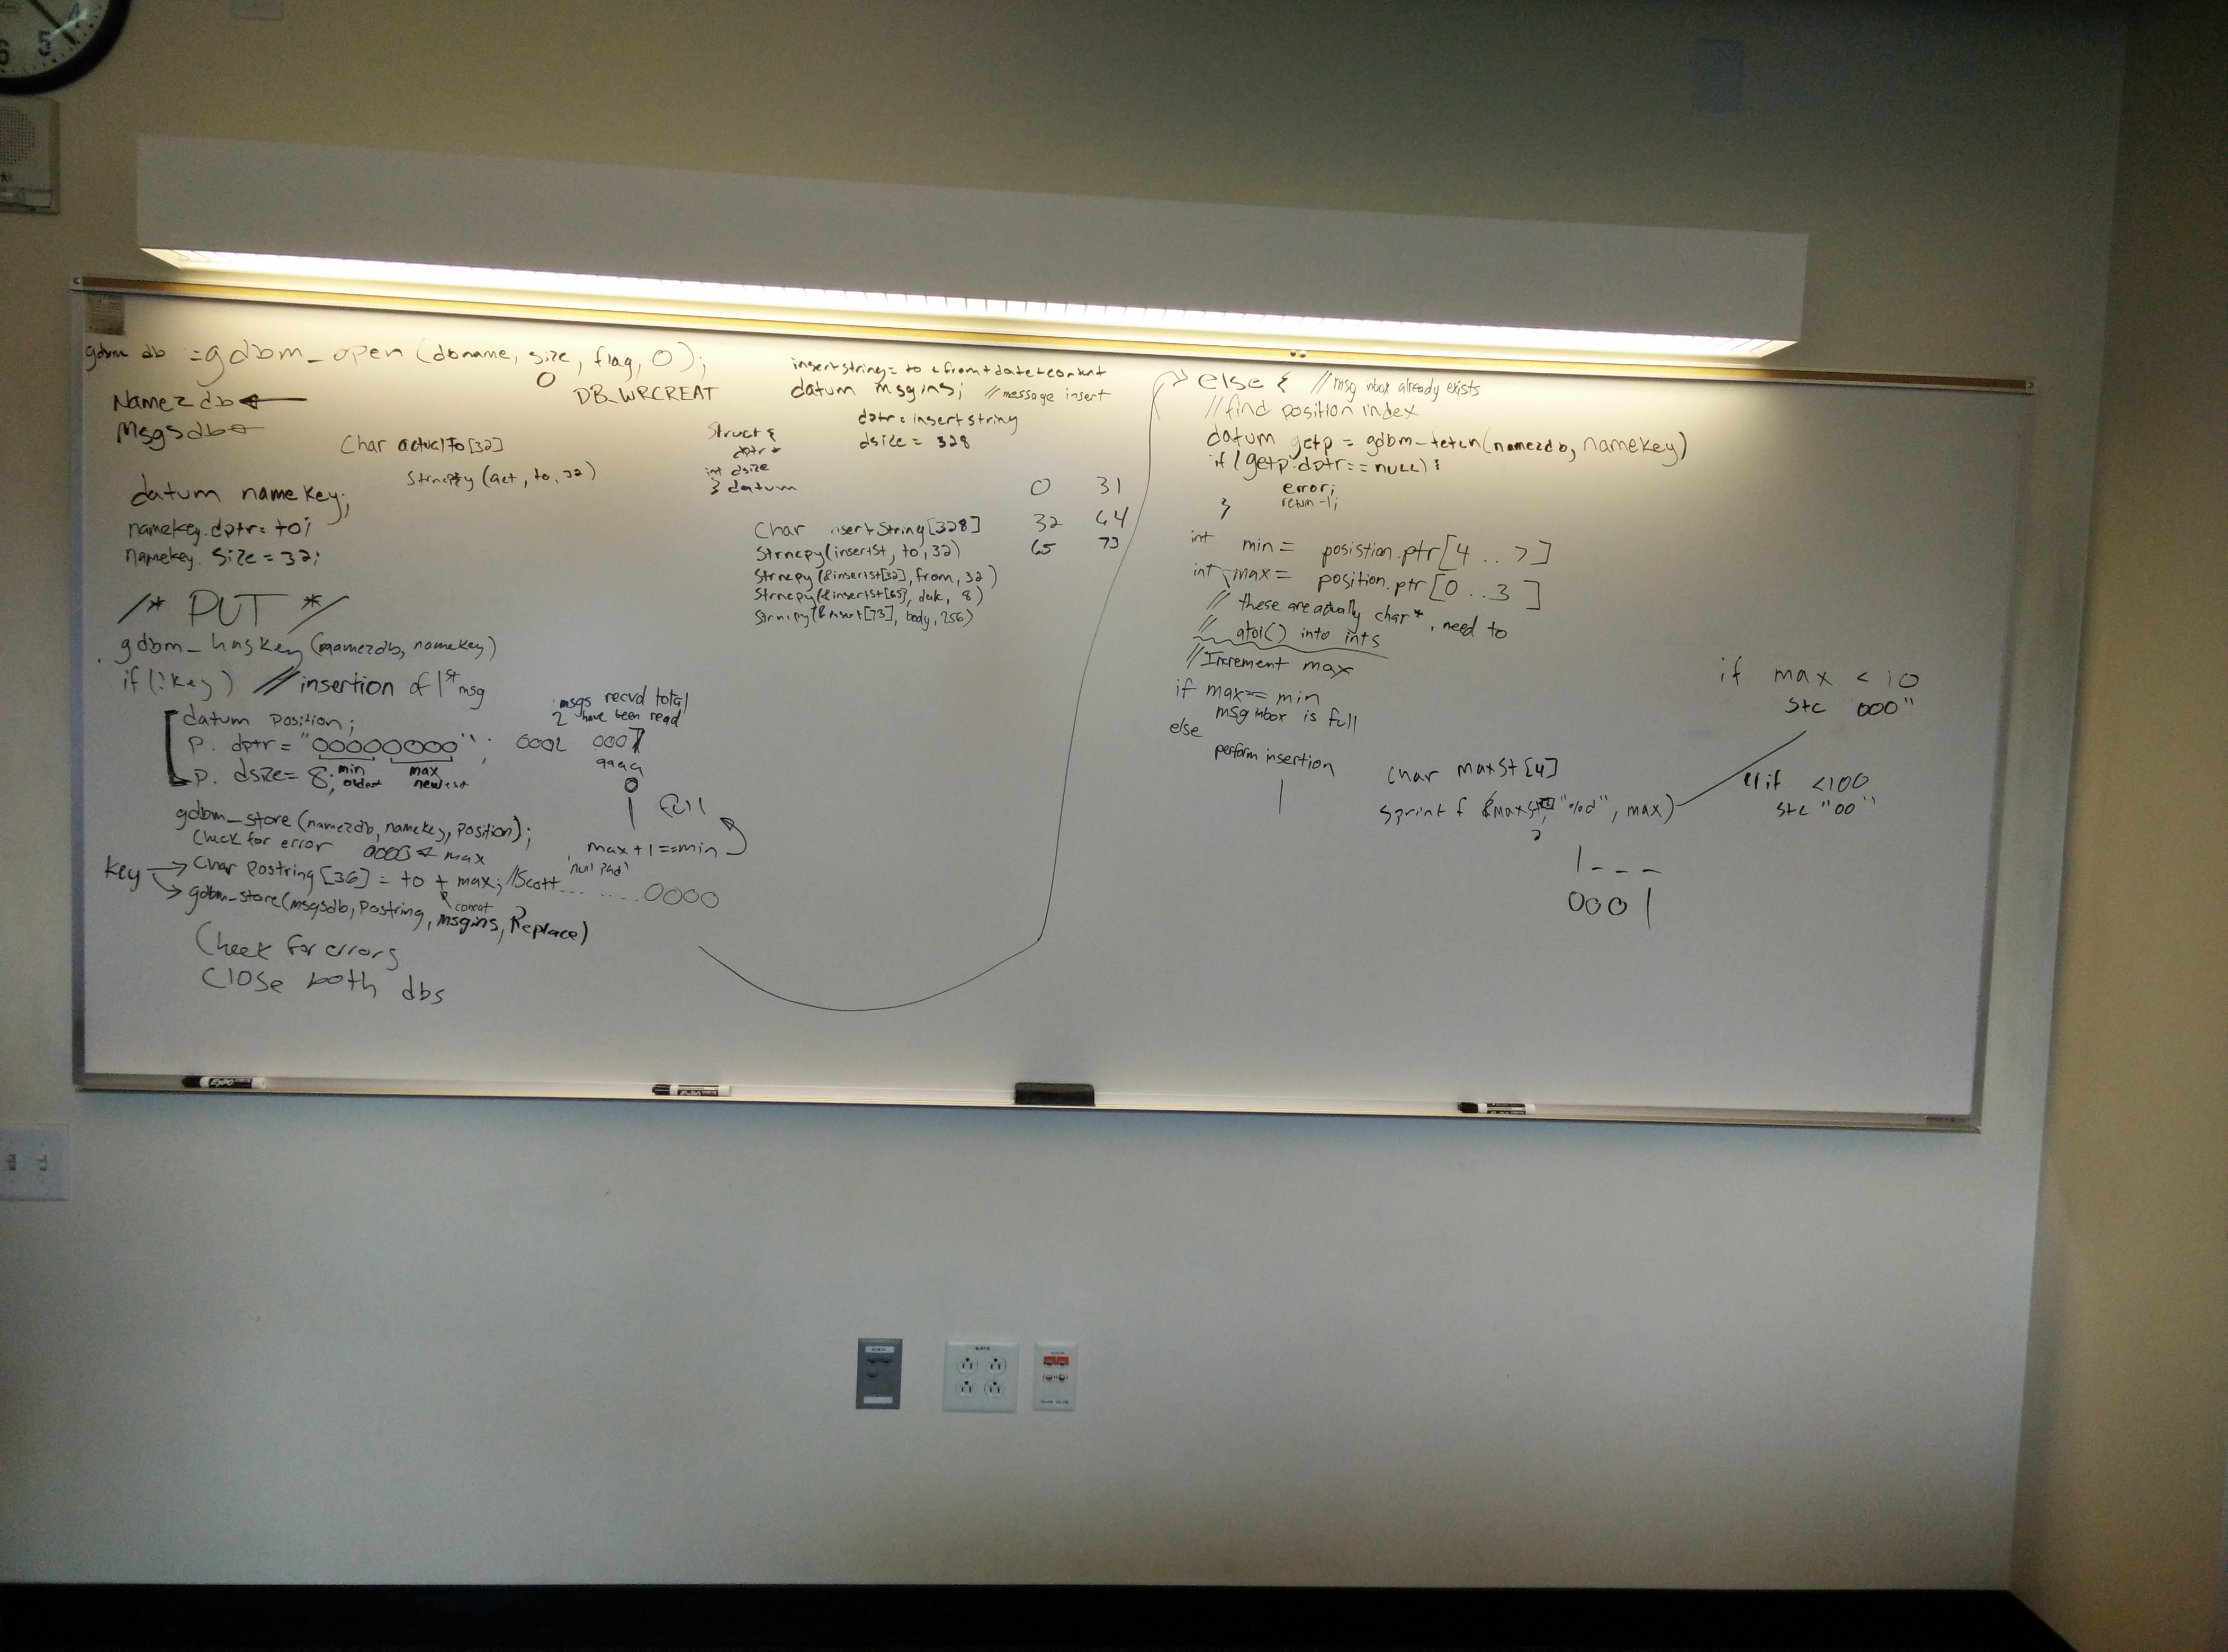 gdbm db = gdbm_open (dbname, size, flag, 0);
0 DB_WRCREAT
Name2db ←
Msgsdb ←
Char actualTo[32]
Strncpy (act, to, 32)
datum namekey;
namekey.dptr = to;
namekey. Size = 32;
/* PUT */
gdbm_haskey (name2db, namekey)
if (!key) // insertion of 1st msg
datum position;
p. dptr = "00000000";
p. dsize = 8;
min max
oldest newest
msgs recvd total
2 have been read
0002 0007
9999
0
1
full
max + 1 == min
gdbm_store (name2db, namekey, position);
Check for error 0000 ← max
key → Char postring [36] = to + max; //Scott.........0000
'null pad'
concat
gdbm_store(msgsdb, postring, msgins, Replace)
Check for errors
Close both dbs
insertstring = to + from + date + content
datum msgins; // message insert
dptr = insertstring
dsize = 328
Struct {
dptr *
int dsize
} datum
Char insertString[328]
Strncpy(insertSt, to, 32)
Strncpy(&insertSt[32], from, 32)
Strncpy(&insertSt[65], date, 8)
Strncpy(&insert[73], body, 256)
0 31
32 64
65 73
else { // msg mbox already exists
// find position index
datum getp = gdbm_fetch(name2db, namekey)
if (getp.dptr == null) {
error;
return -1;
}
int min = posistion.ptr[4 .. 7]
int max = position.ptr[0 .. 3]
// these are actually char*, need to
// atoi() into ints
// Increment max
if max == min
msg mbox is full
else
perform insertion
Char maxSt[4]
sprintf "%d", max)
if max < 10
stc "000"
if <100
stc "00"
1 _ _ _
0001
5
4
6